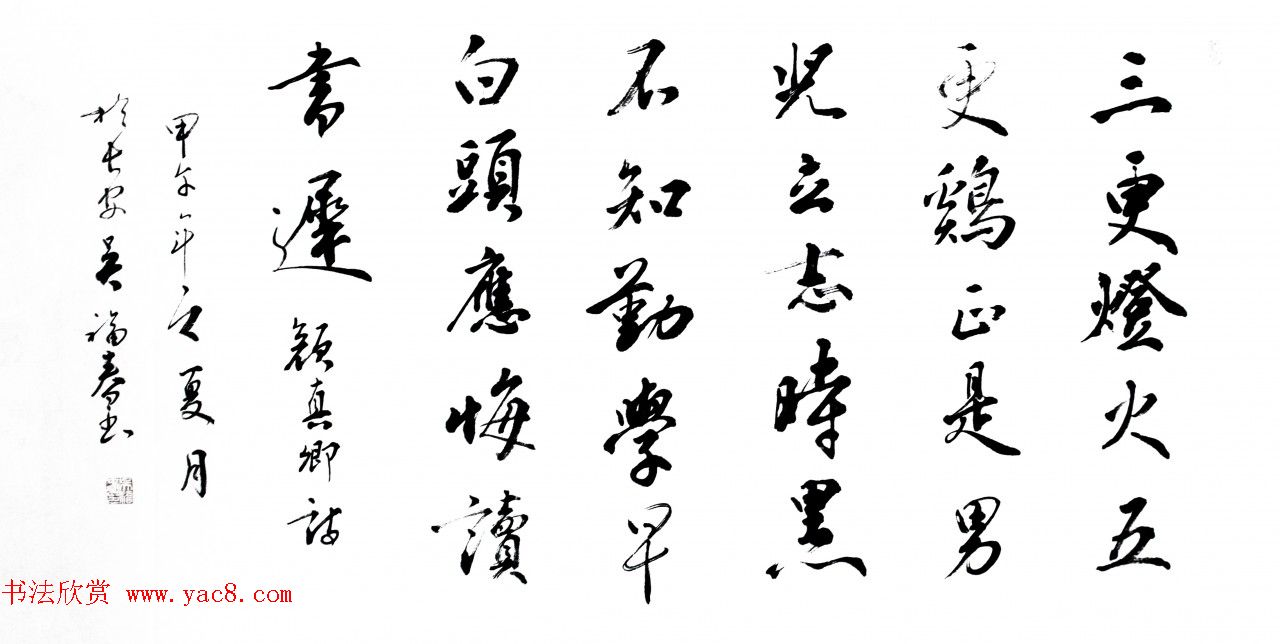 三更燈火五
更鷄正是男
兒立志時黑
不知勤學早
白頭應悔讀
書遲 顏真卿詩
甲午年之夏月
於長安吴福春书
书法欣赏 www.yac8.com